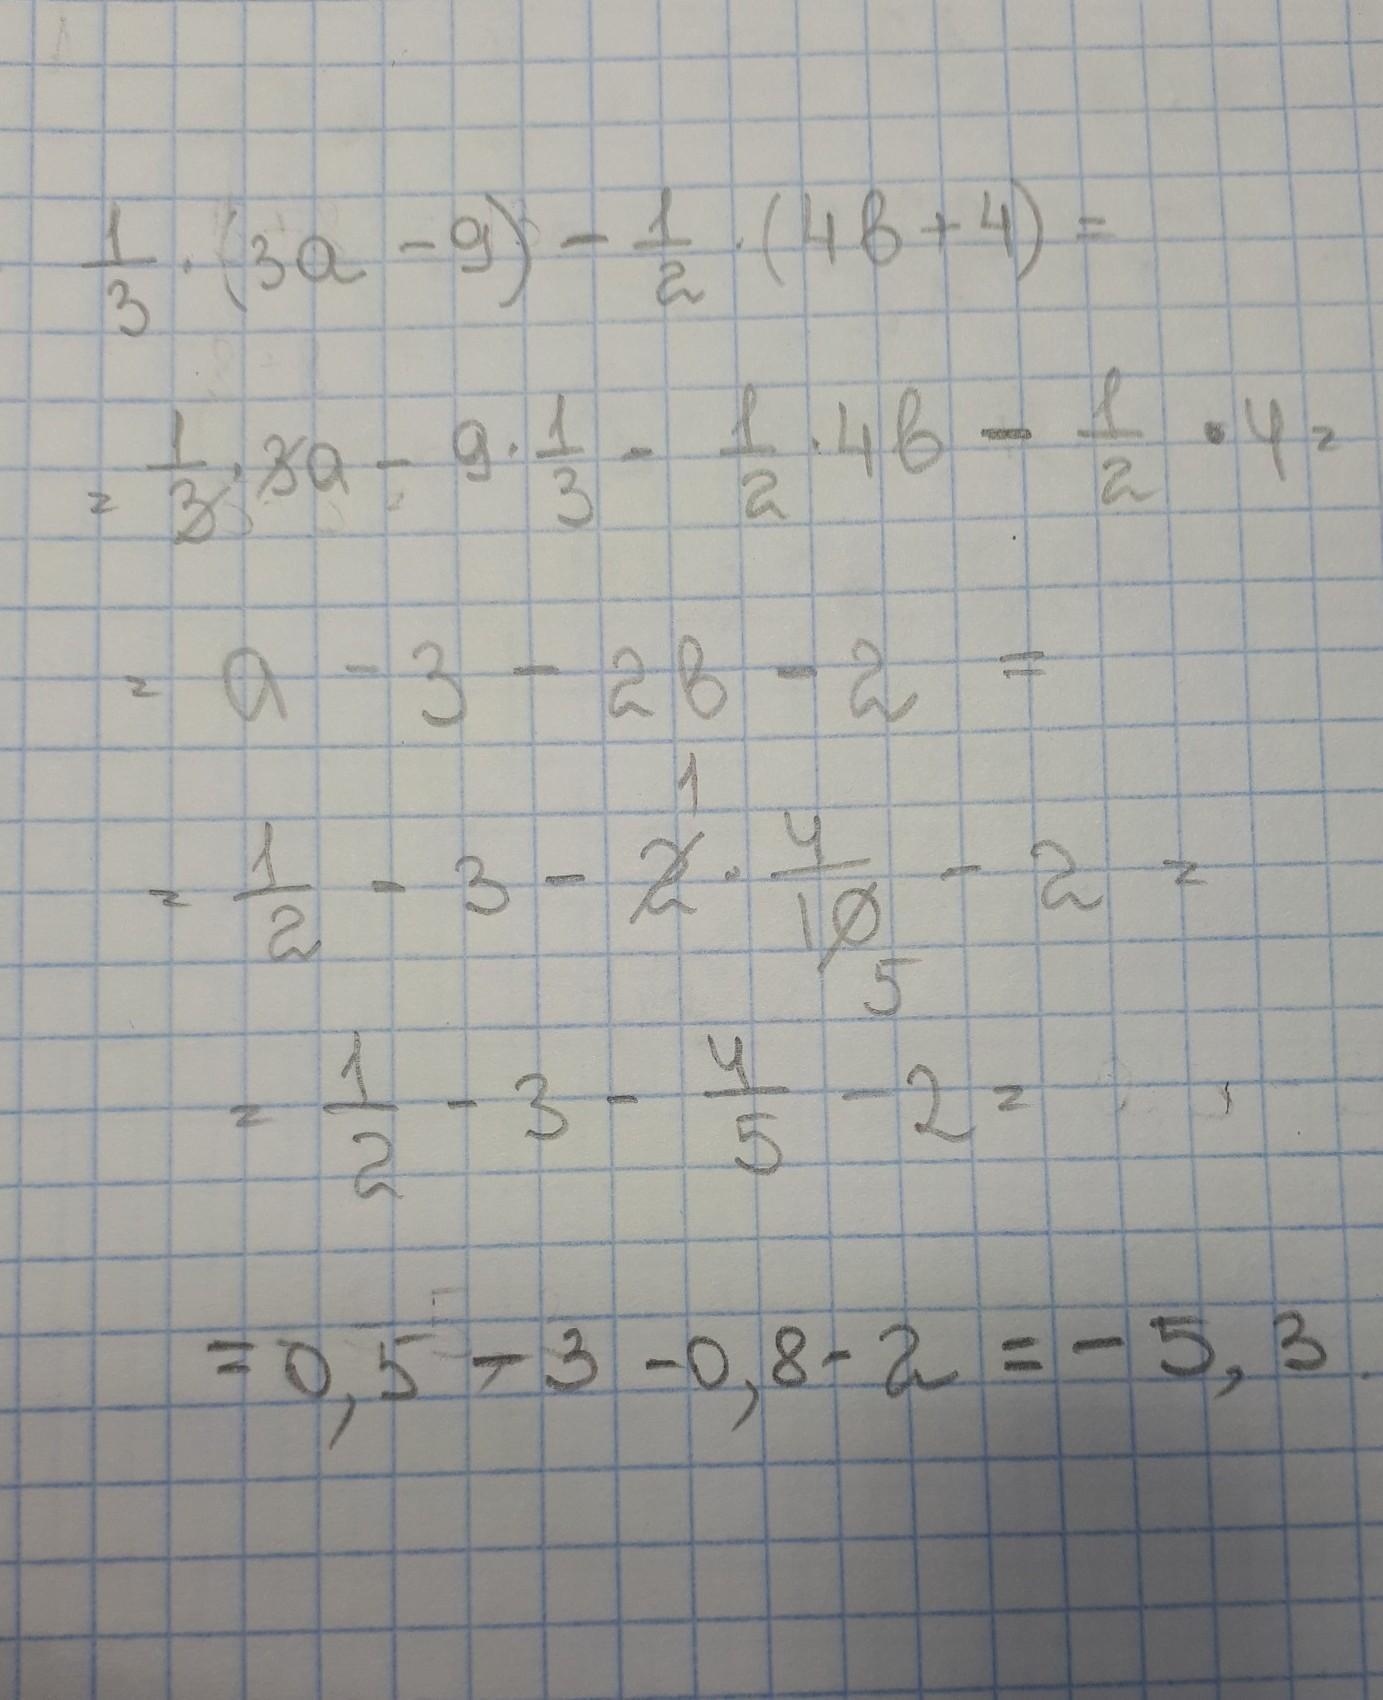 1/3 · (3a - 9) - 1/2 · (4b + 4) =
= 1/3 · 3a - 9 · 1/3 - 1/2 · 4b - 1/2 · 4 =
= a - 3 - 2b - 2 =
1
= 1/2 - 3 - 2 · 4/10 - 2 =
5
= 1/2 - 3 - 4/5 - 2 =
= 0,5 - 3 - 0,8 - 2 = - 5, 3